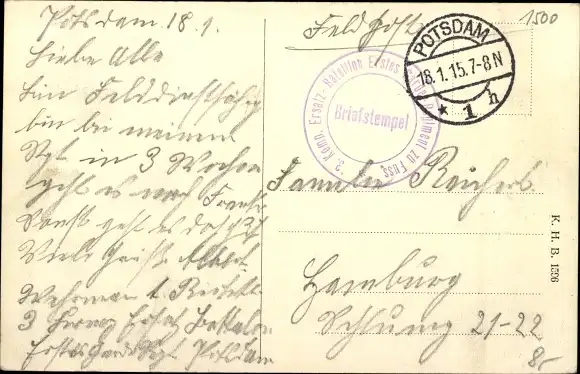 Potsdam 18.1.
Liebe Alle
Bin Felddienstfähig
bin bei meinem
Rgt in 3 Wochen
geht es nach
Sonst geht es
Viele Grüße Albert
Wehrman A.
3 Ersatz Batallon
Garde Rgt Potsdam
Feldpost
1500
POTSDAM
18.1.15.7-8N
* 1 h
3. Komp. Ersatz-Bataillon Erstes Garde-Regiment zu Fuss.
Briefstempel
Familie Reichert
Hamburg
21-22
8,-
K. H. B. 1526